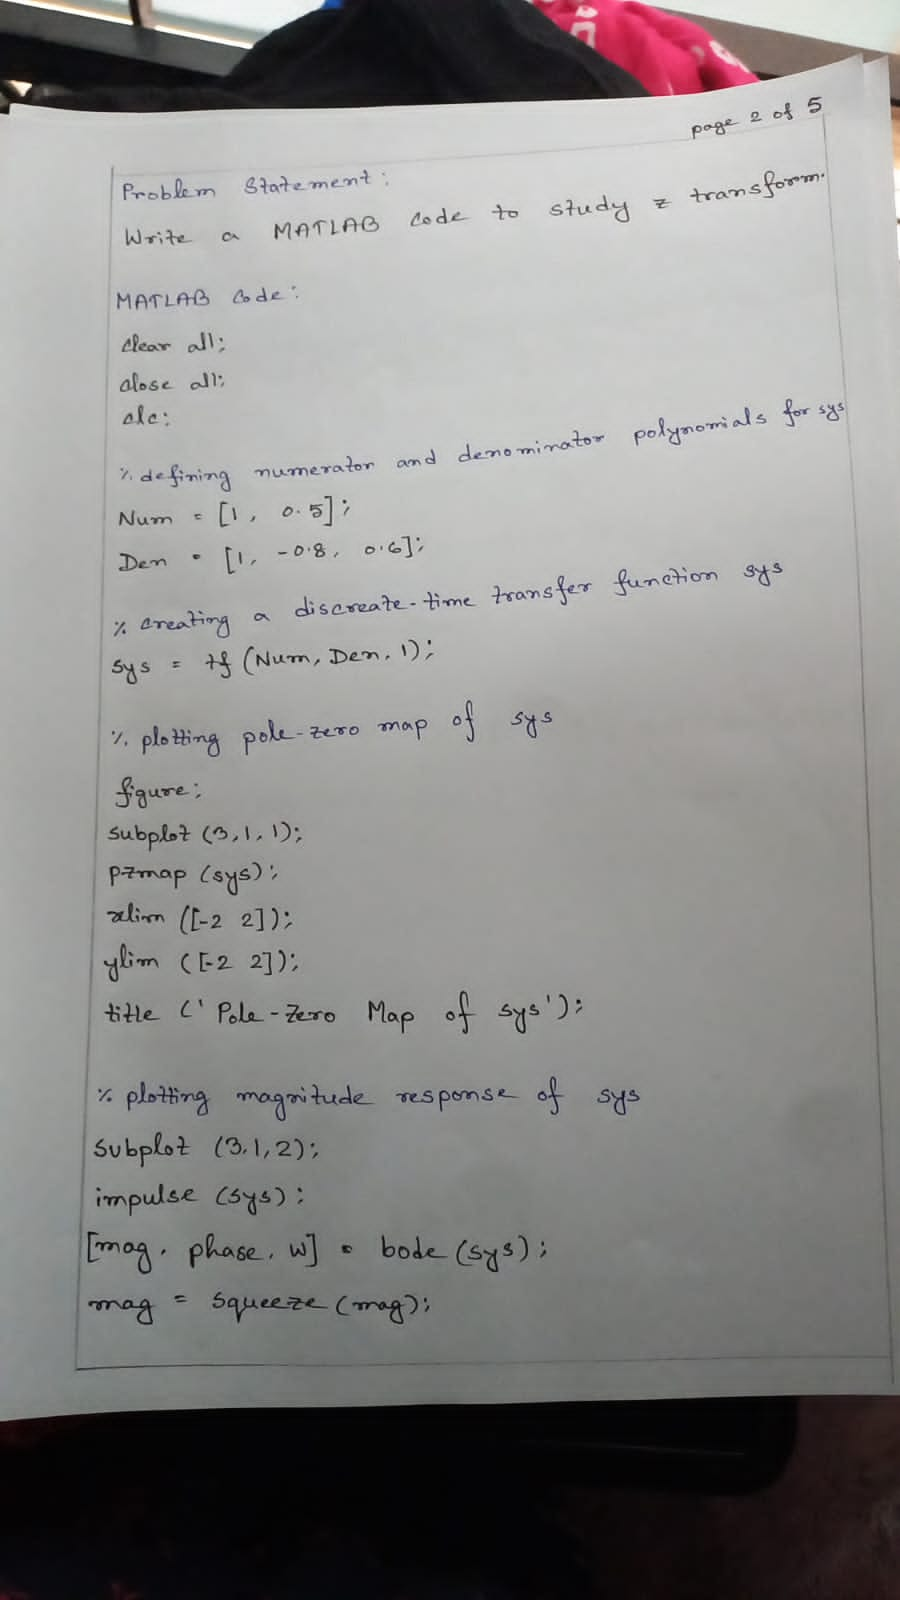 page 2 of 5
Problem Statement:
Write a MATLAB code to study z transform.
MATLAB Code:
clear all;
close all;
clc;
% defining numerator and denominator polynomials for sys
Num = [1, 0.5];
Den = [1, -0.8, 0.6];
% creating a discreate-time transfer function sys
sys = tf (Num, Den, 1);
% plotting pole-zero map of sys
figure;
subplot (3,1,1);
pzmap (sys);
xlim ([-2 2]);
ylim ([-2 2]);
title ('Pole-Zero Map of sys');
% plotting magnitude response of sys
subplot (3,1,2);
impulse (sys);
[mag, phase, w] = bode (sys);
mag = squeeze (mag);